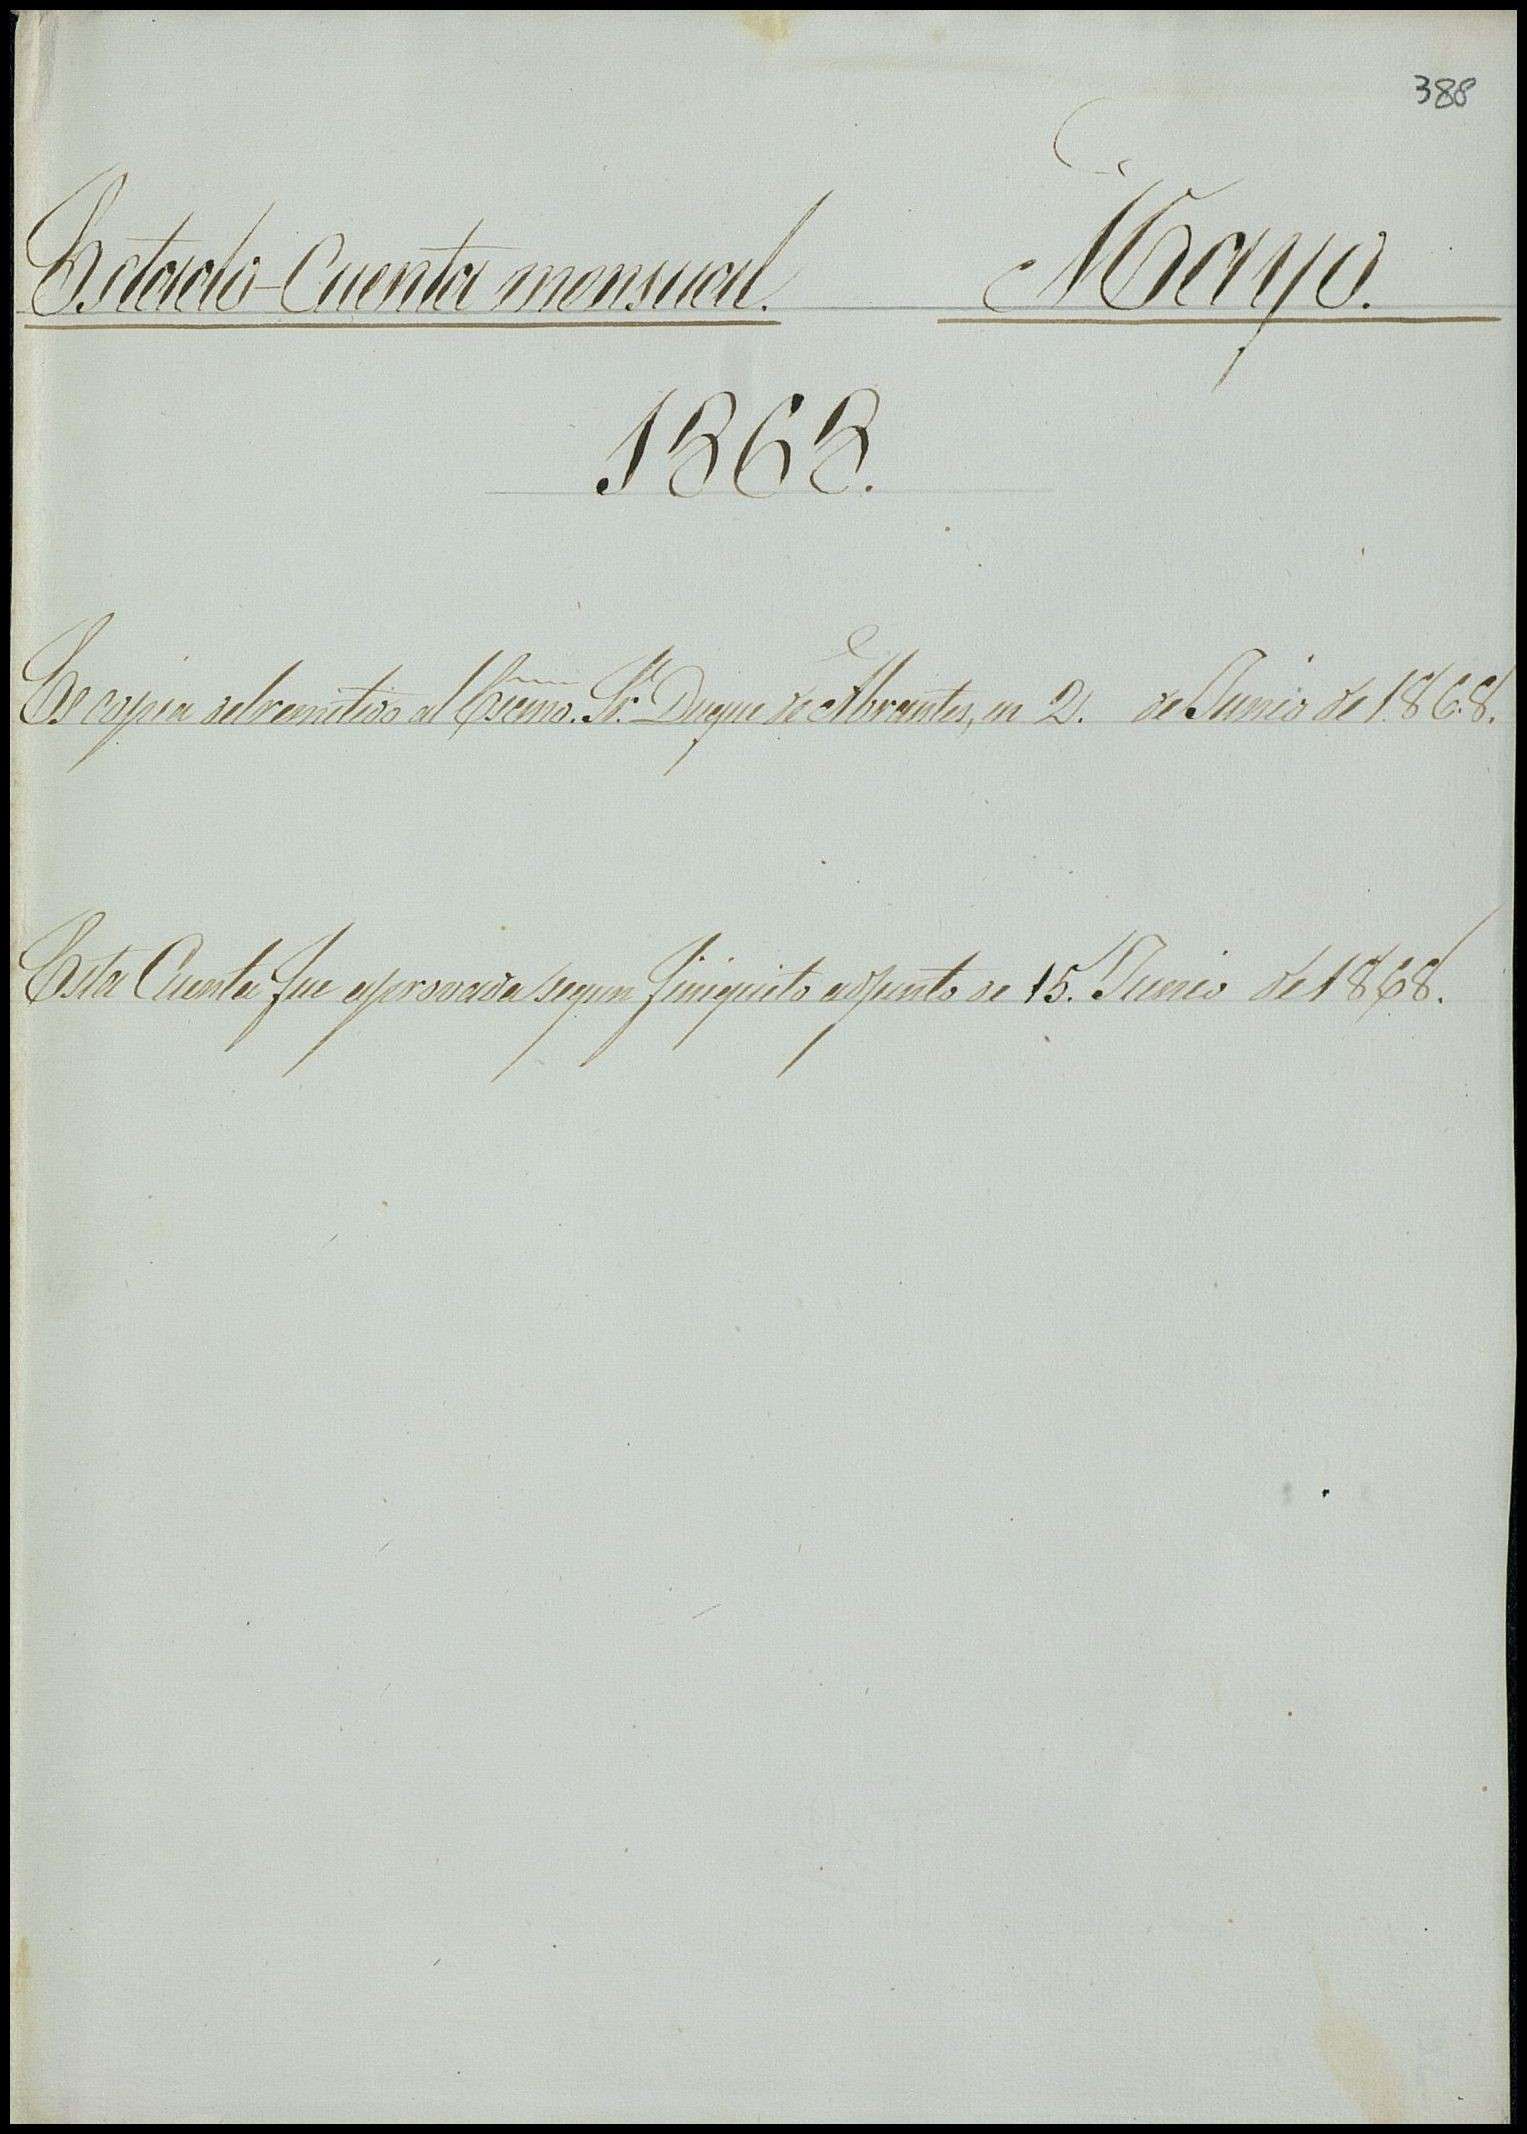 388
Estado-Cuenta mensual. Mayo.
1868.
Es copia del remitido al Excmo. Sr. Duque de Abrantes, en 2. de Junio de 1868.
Esta Cuenta fue aprovada segun finiquito adjunto de 15. Junio de 1868.